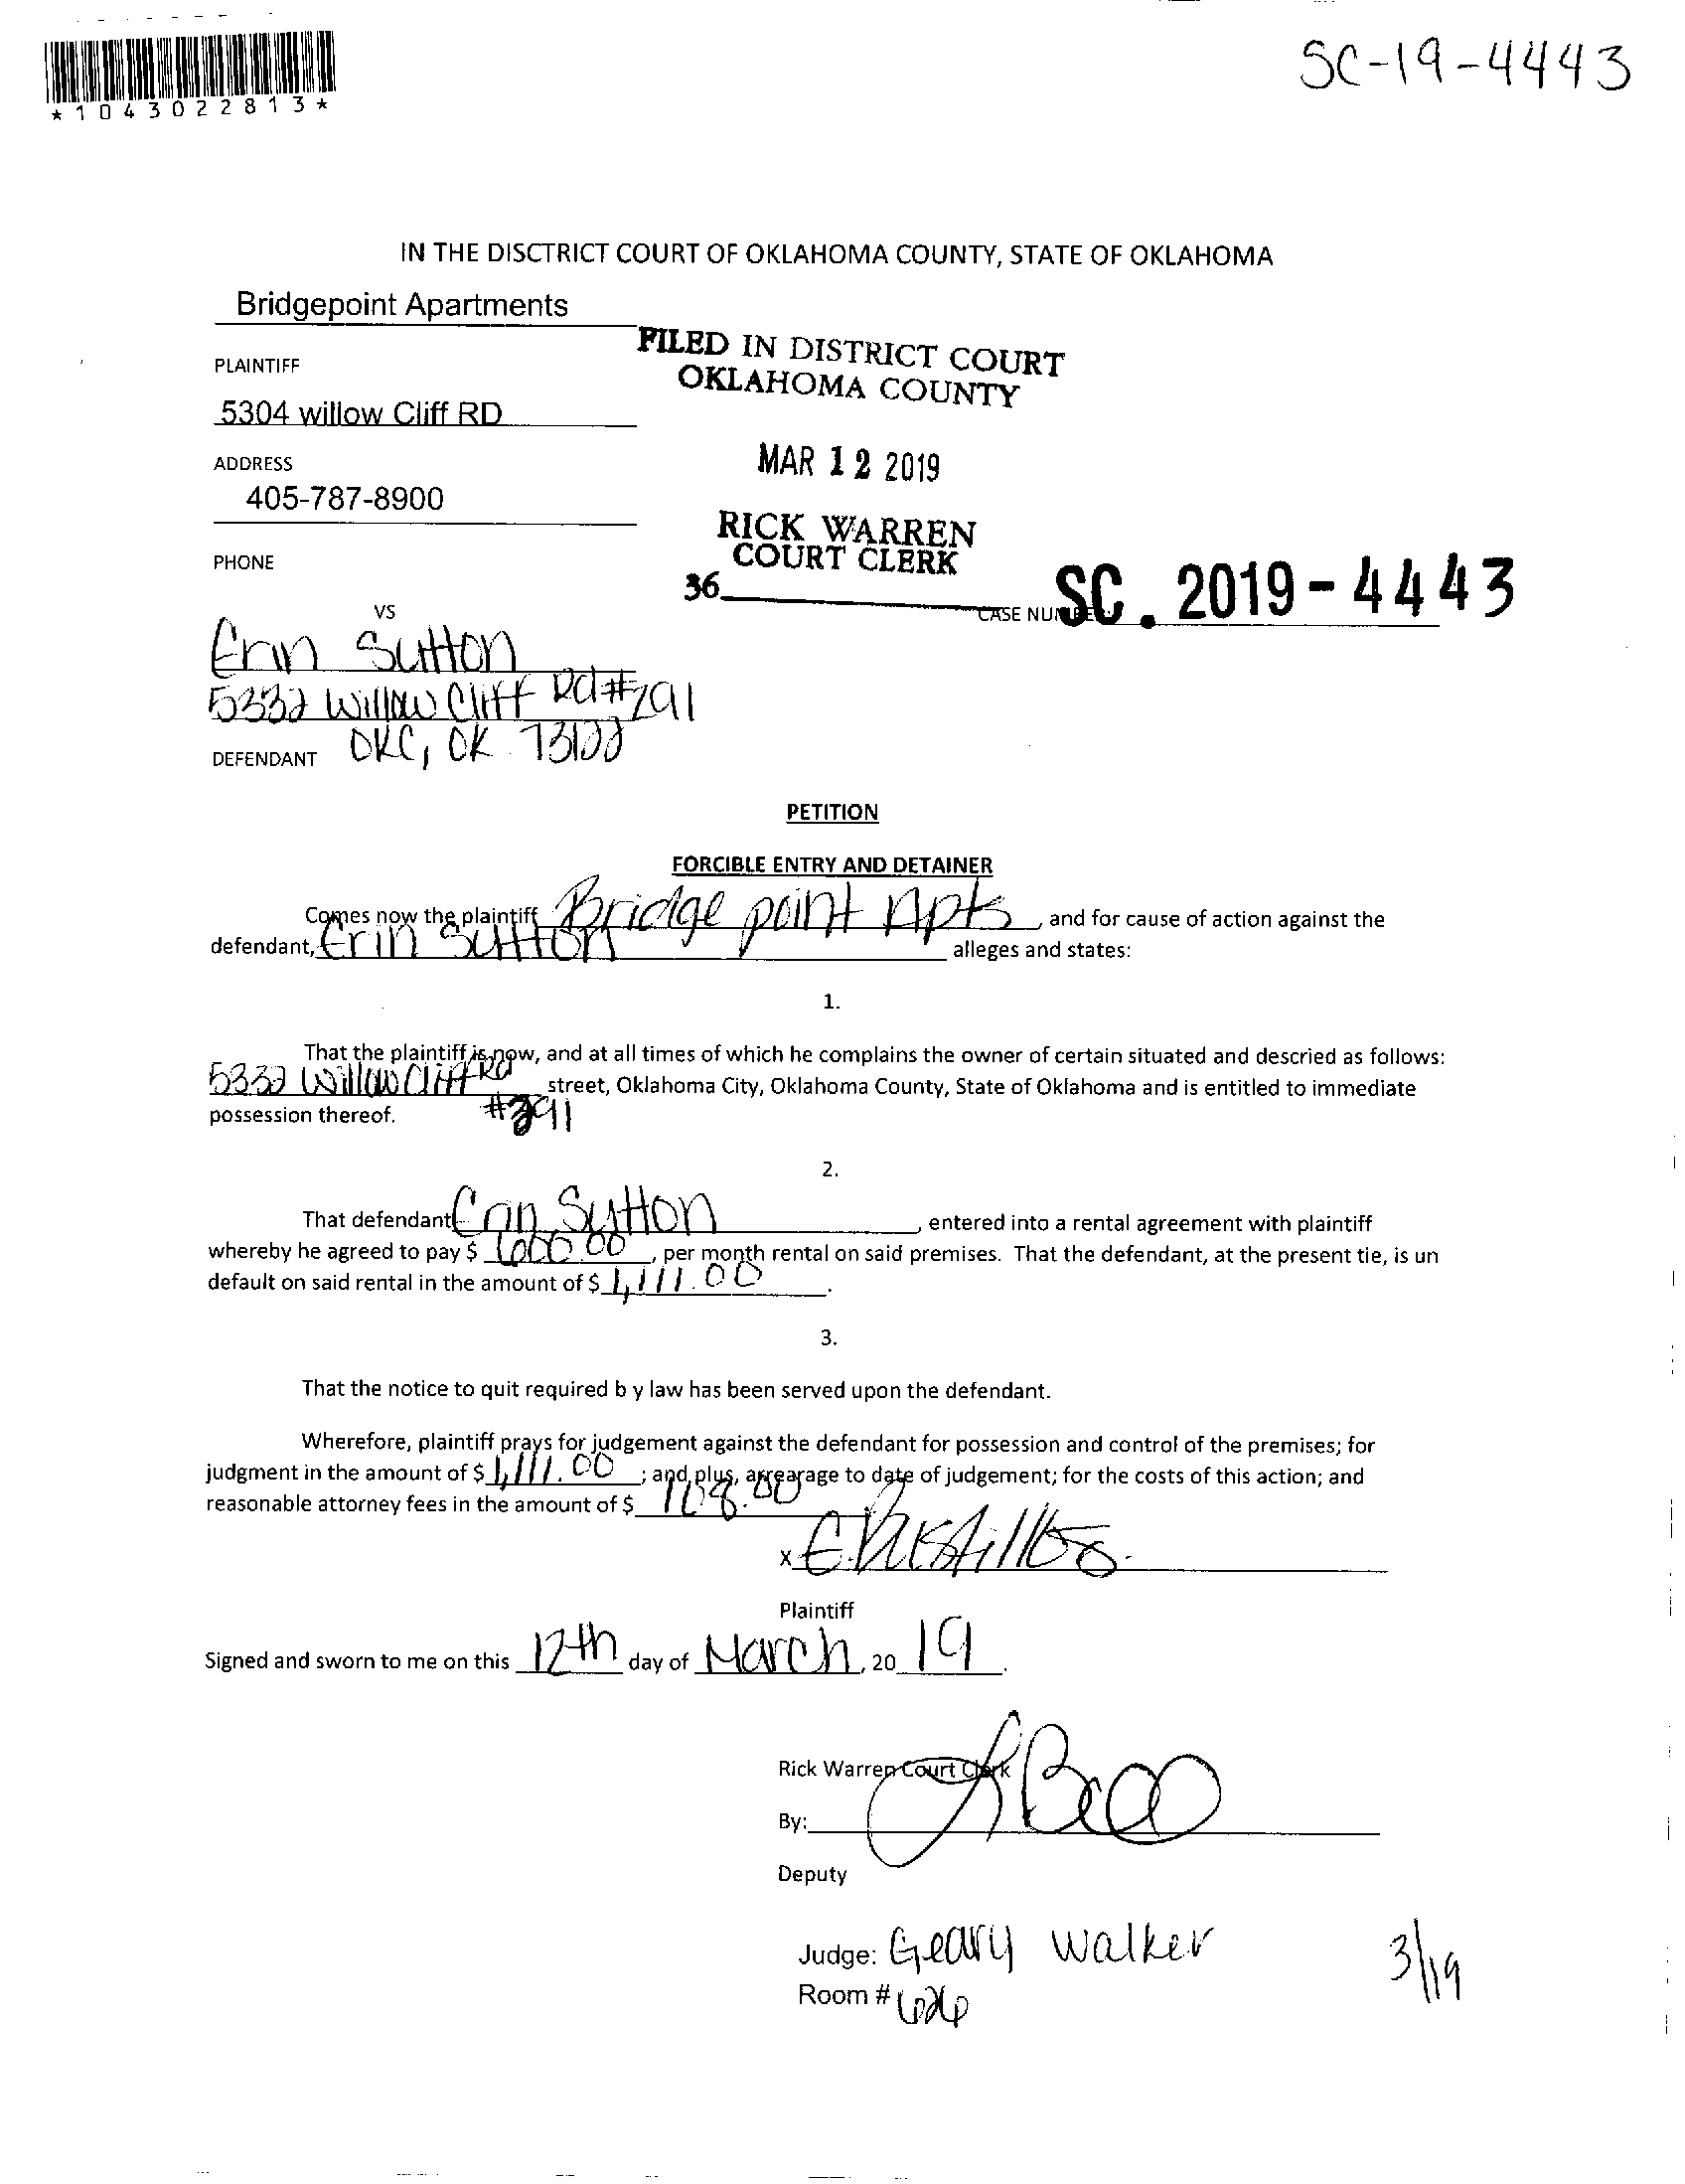 SC-19-4443
*1043022813*
IN THE DISCTRICT COURT OF OKLAHOMA COUNTY, STATE OF OKLAHOMA
Bridgepoint Apartments
PLAINTIFF
5304 willow Cliff RD
ADDRESS
405-787-8900
PHONE
FILED IN DISTRICT COURT
OKLAHOMA COUNTY
MAR 12 2019
RICK WARREN
COURT CLERK
36
CASE NUMBER: SC. 2019-4443
VS
Erin Sutton
5332 Willow Cliff Rd #291
DEFENDANT OKC, OK 73122
PETITION
FORCIBLE ENTRY AND DETAINER
Comes now the plaintiff Bridge point Apts, and for cause of action against the
defendant, Erin Sutton alleges and states:
1.
That the plaintiff is now, and at all times of which he complains the owner of certain situated and descried as follows:
5332 Willow Cliff Rd street, Oklahoma City, Oklahoma County, State of Oklahoma and is entitled to immediate
possession thereof. #291
2.
That defendant Erin Sutton, entered into a rental agreement with plaintiff
whereby he agreed to pay $ 600.00, per month rental on said premises. That the defendant, at the present tie, is un
default on said rental in the amount of $ 1,111.00.
3.
That the notice to quit required b y law has been served upon the defendant.
Wherefore, plaintiff prays for judgement against the defendant for possession and control of the premises; for
judgment in the amount of $ 1,111.00; and, plus, arrearage to date of judgement; for the costs of this action; and
reasonable attorney fees in the amount of $
x
Plaintiff
Signed and sworn to me on this 12th day of March, 2019.
Rick Warren Court Clerk
By:
Deputy
Judge: Geary Walker
Room # 626
3/19